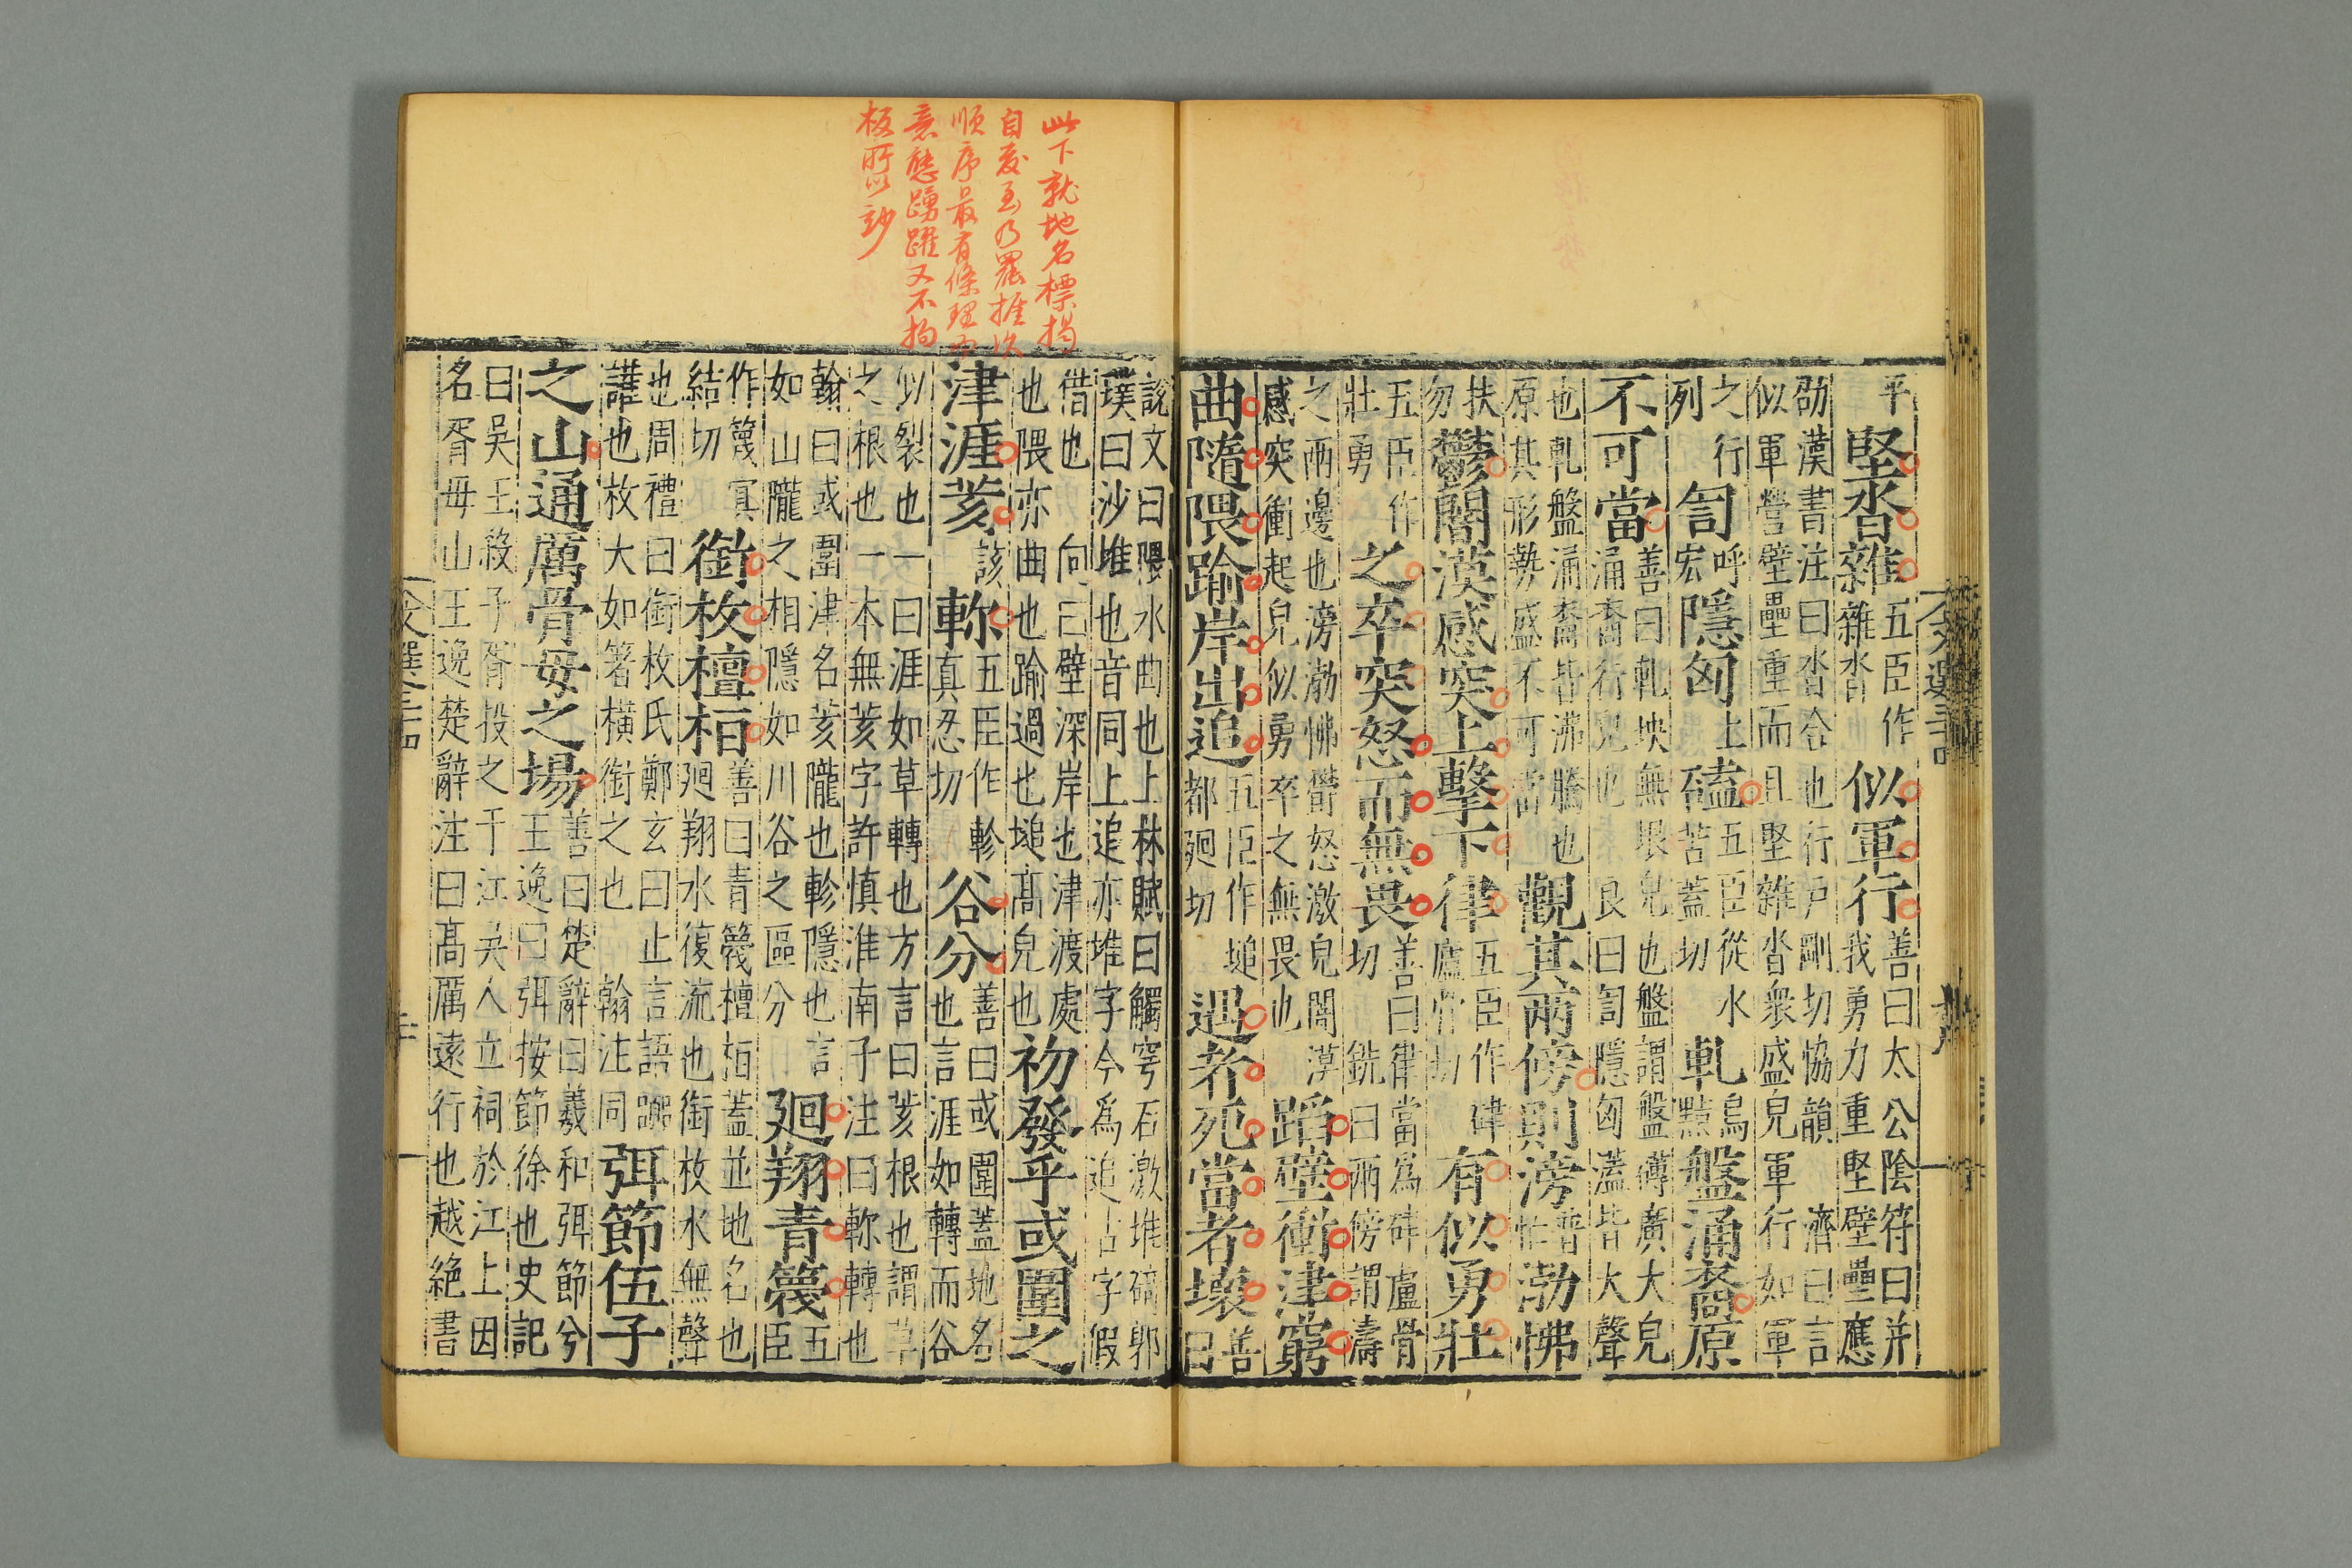 平 堅沓雜五臣作雜沓似軍行善曰太公陰符曰并我勇力重堅壁壘應
劭漢書注曰沓合也行戸剛切協韻 濟曰言
似軍營壁壘重而且堅雜沓衆盛皃軍行如軍
之行列訇呼宏隱匈上礚五臣從水苦蓋切軋烏黠盤涌裔原
不可當善曰軋坱無垠皃也盤謂盤礴廣大皃涌裔行皃也 良曰訇隱匈蓋皆大聲
也軋盤涌裔皆沸騰也原其形勢盛不可當觀其兩傍則滂渤怫
扶勿鬱闇漠感突上擊下律五臣作硉盧骨切有似勇壯
五臣作壯勇之卒突怒而無畏善曰律當爲硉盧骨切 銑曰兩傍謂濤
之兩邊也滂渤怫鬱怒激皃闇漠感突衝起皃似勇卒之無畏也蹈壁衝津窮
曲隨隈踰岸出追五臣作塠都廻切遇者死當者壞善曰
此下就地名標揭
自發至乃罷推次
順序最有條理而
意態踴躍又不拘
板所以妙
說文曰隈水曲也上林賦曰觸穹石激堆碕郭
璞曰沙堆也音同上追亦堆字今爲追古字假
借也 向曰壁深岸也津渡處也隈亦曲也踰過也塠高皃也初發乎或圍之
津涯荄該軫五臣作軫真忍切谷分善曰或圍蓋地名也言涯如轉而谷
似裂也一曰涯如草轉也方言曰荄根也謂草
之根也一本無荄字許慎淮南子注曰軫轉也
翰曰或圍津名荄隴也軫隱也言如山隴之相隱如川谷之區分廻翔青篾五臣
作篾冥結切銜枚檀桓善曰青篾檀栢蓋並地名也廻翔水復流也銜枚水無聲
也周禮曰銜枚氏鄭玄曰止言語囂讙也枚大如箸橫銜之也 翰注同弭節伍子
之山通厲骨母之場善曰楚辭曰羲和弭節兮王逸曰弭按節徐也史記
曰吳王殺子胥投之于江吳人立祠於江上因
名胥母山王逸楚辭注曰高厲遠行也越絶書